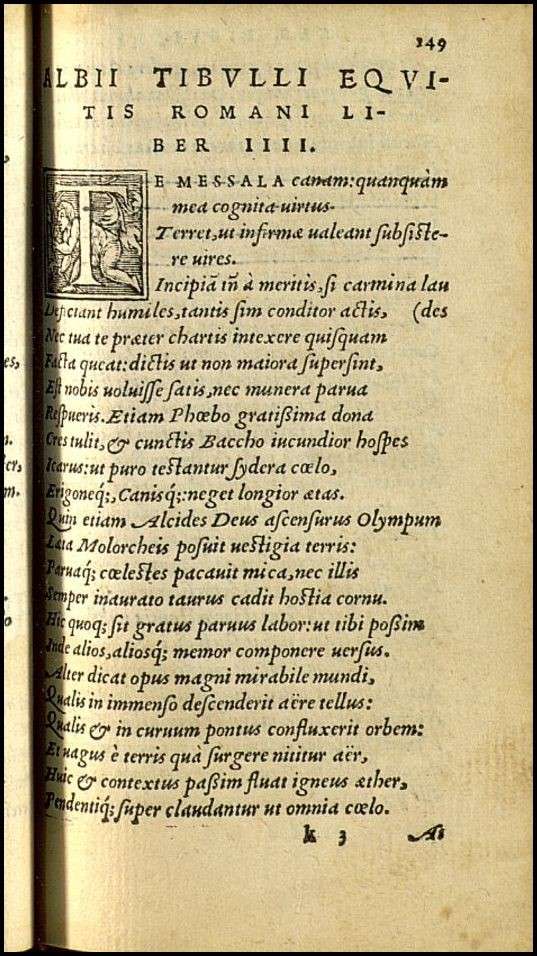 149
ALBII TIBVLLI EQVI-
TIS ROMANI LI-
BER IIII.
TE MESSALA canam: quanquàm
mea cognita uirtus
Terret, ut infirmæ ualeant ſubſiſte-
re uires.
Incipiā tñ à meritis, ſi carmina lau
Deficiant humiles, tantis ſim conditor actis, (des
Nec tua te præter chartis intexere quiſquam
Facta queat: dictis ut non maiora ſuperſint,
Eſt nobis uoluiſſe ſatis, nec munera parua
Reſpueris. Etiam Phœbo gratißima dona
Cres tulit, & cunctis Baccho iucundior hoſpes
Icarus: ut puro teſtantur ſydera cœlo,
Erigoneq;, Canisq;: neget longior ætas.
Quin etiam Alcides Deus aſcenſurus Olympum
Læta Molorcheis poſuit ueſtigia terris:
Paruaq; cœleſtes pacauit mica, nec illis
Semper inaurato taurus cadit hoſtia cornu.
Hic quoq; ſit gratus paruus labor: ut tibi poßim
Inde alios, aliosq; memor componere uerſus.
Alter dicat opus magni mirabile mundi,
Qualis in immenſo deſcenderit aëre tellus:
Qualis & in curuum pontus confluxerit orbem:
Et uagus è terris quà ſurgere nititur aër,
Huic & contextus paßim fluat igneus æther,
Pendentiq; ſuper claudantur ut omnia cœlo.
k 3 At
es,
n.
er,
m.